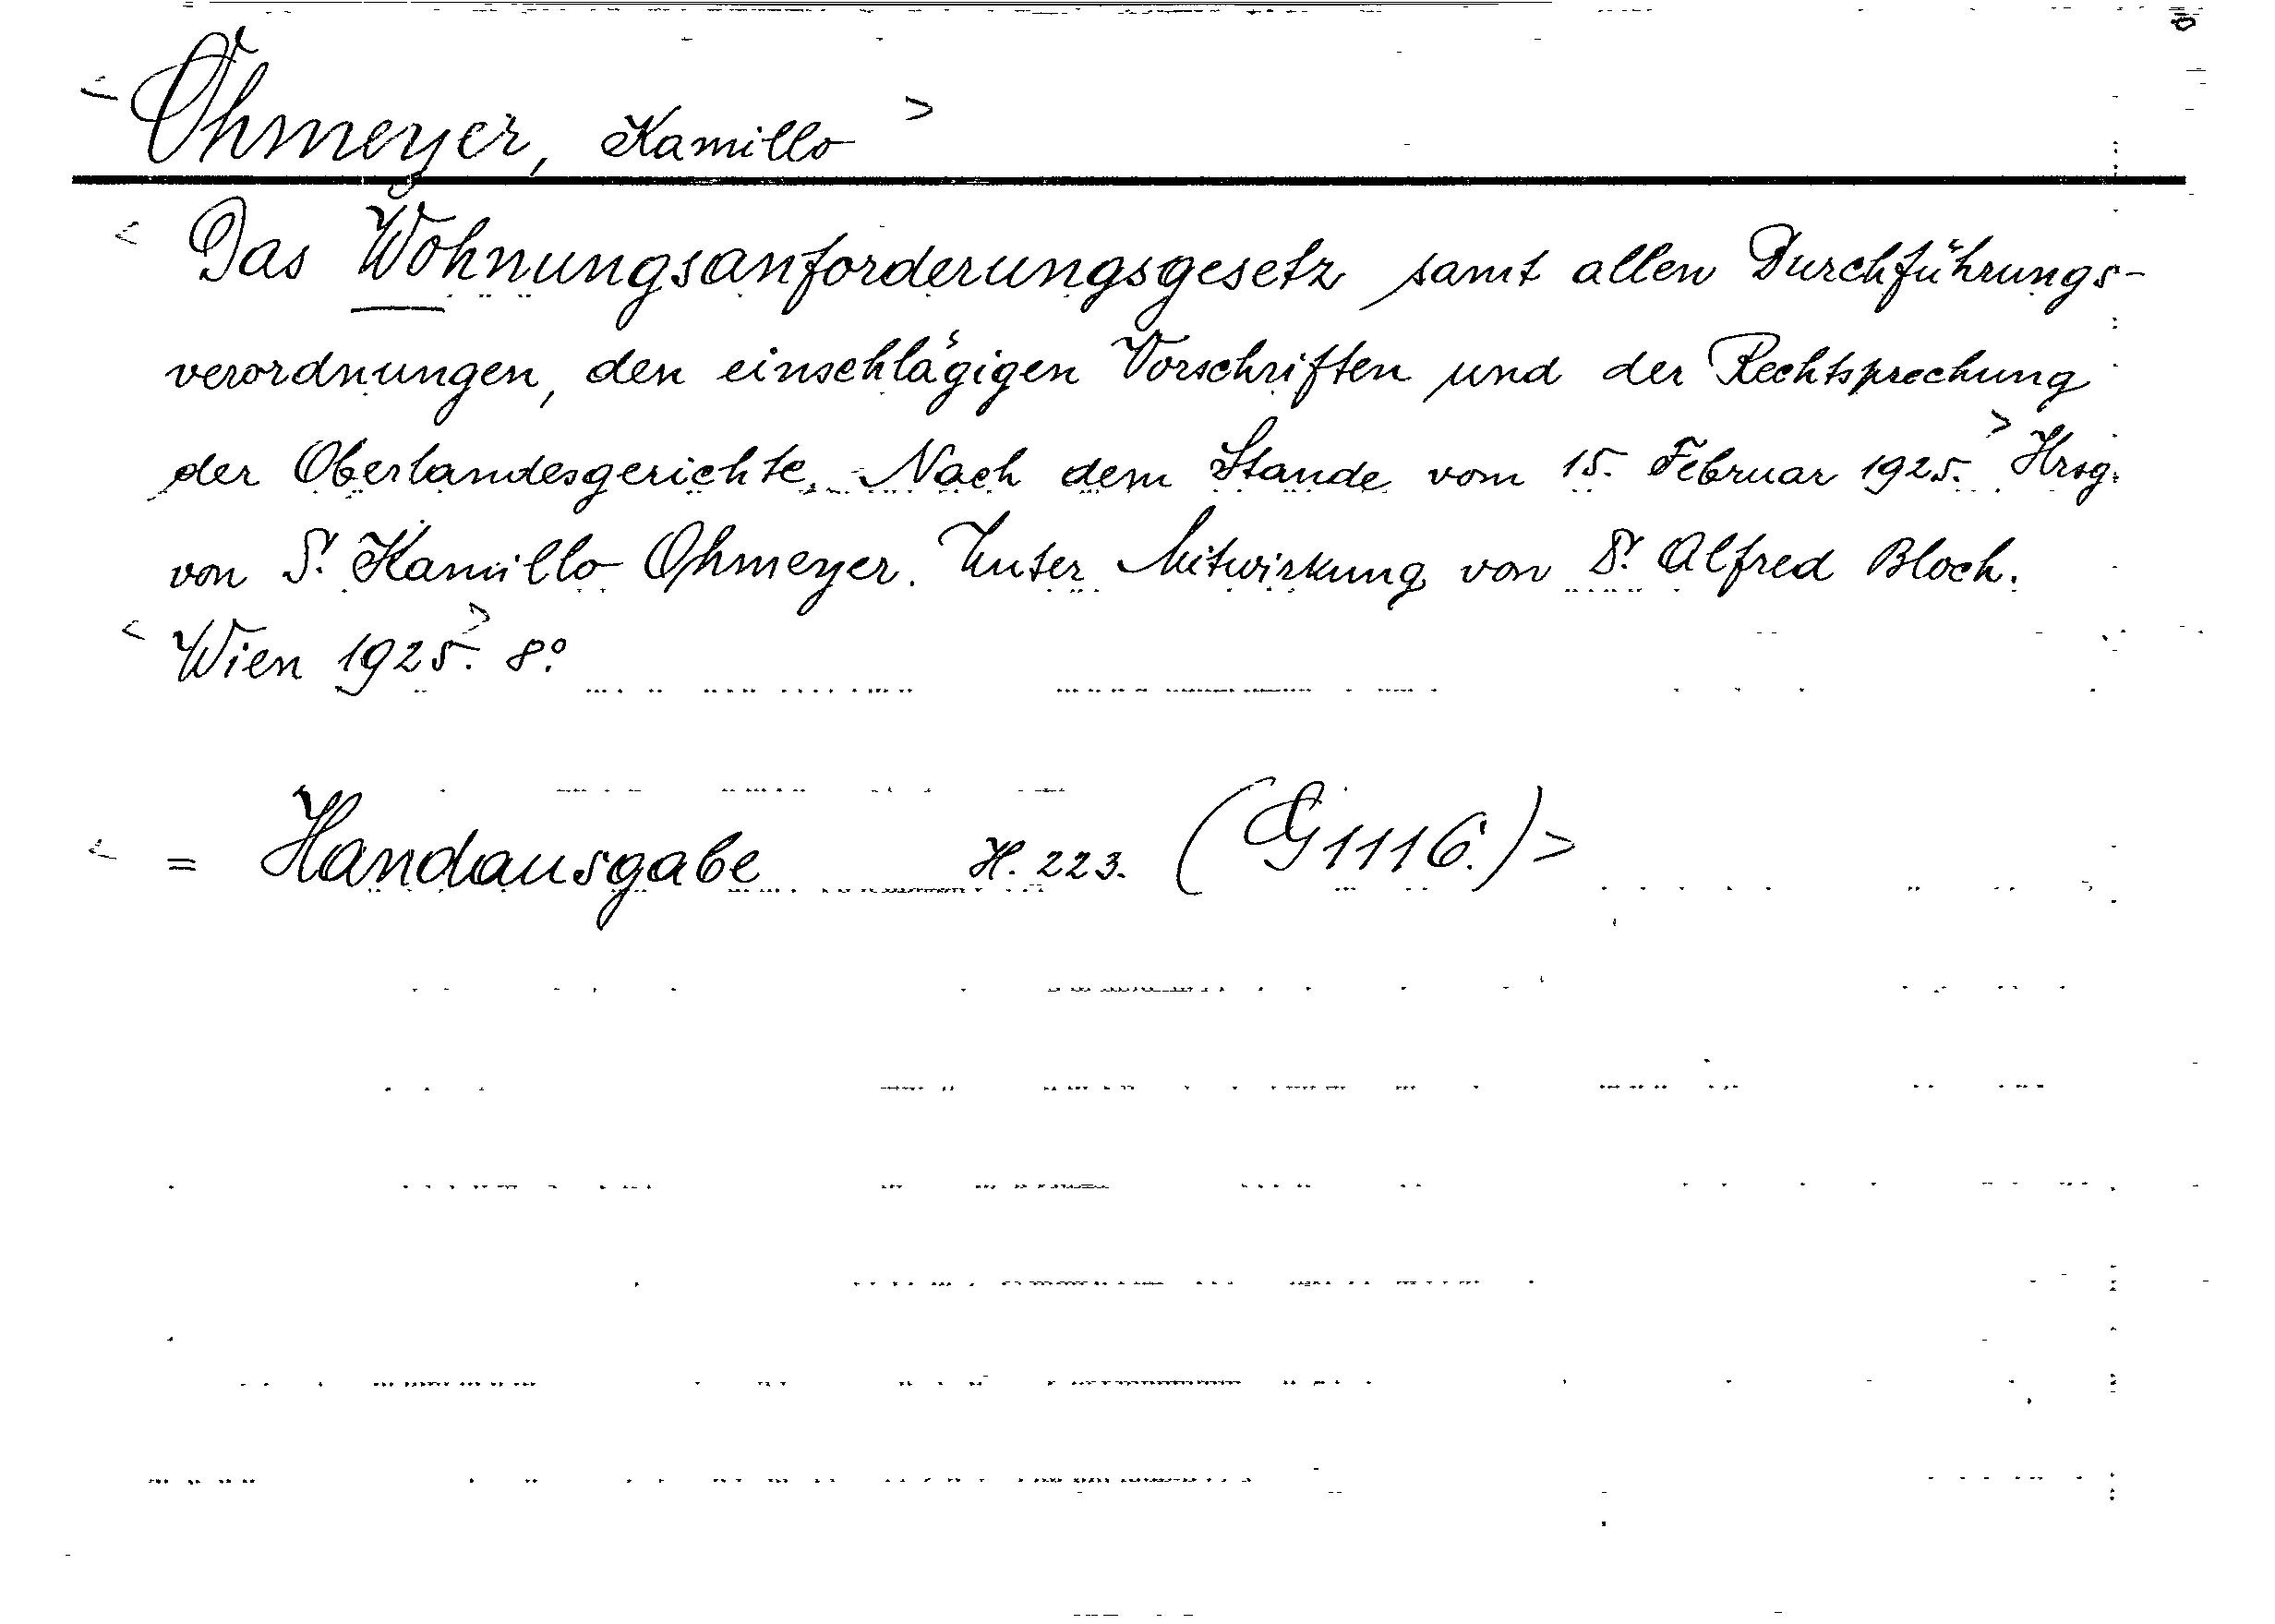 < Ohmeyer, Kamillo >
< Das Wohnungsanforderungsgesetz samt allen Durchführungs-
verordnungen, den einschlägigen Vorschriften und der Rechtsprechung
der Oberlandesgerichte. Nach dem Stande vom 15. Februar 1925. > Hrsg.
von Dr. Kamillo Ohmeyer. Unter Mitwirkung von Dr. Alfred Bloch.
< Wien 1925. > 8°.
< = Handausgabe H. 223. (G 1116.) >